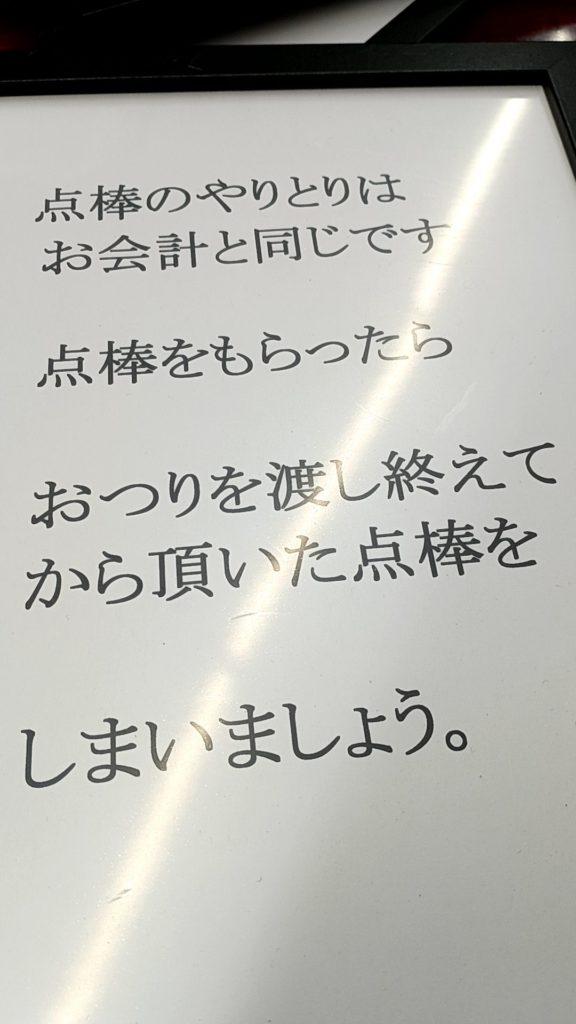 点棒のやりとりは
お会計と同じです
点棒をもらったら
おつりを渡し終えて
から頂いた点棒を
しまいましょう。